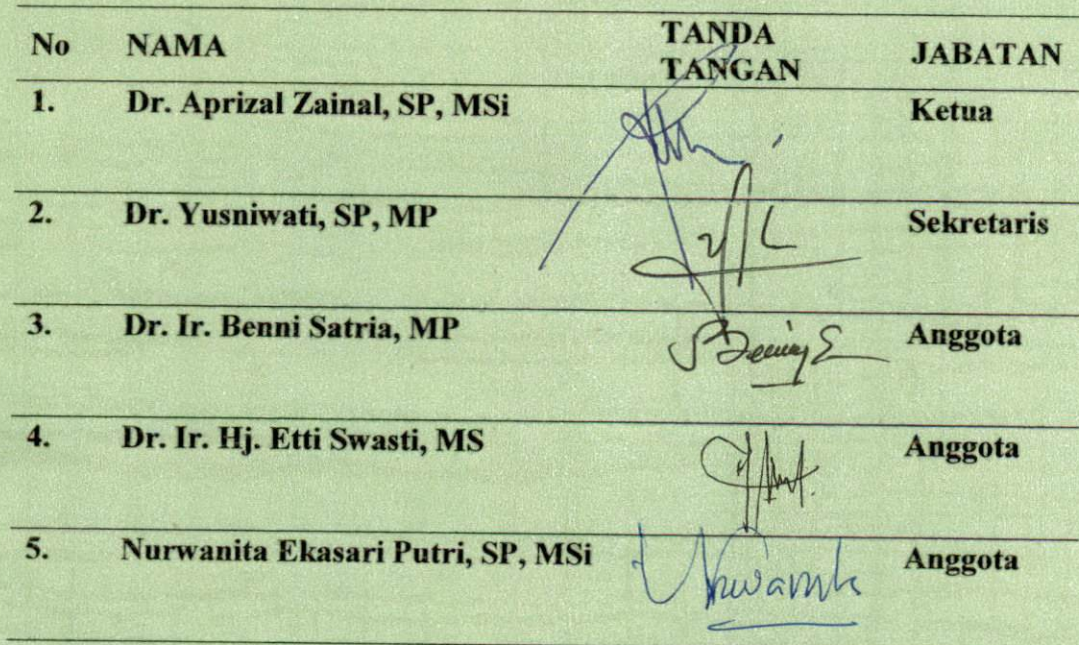 No NAMA TANDA TANGAN JABATAN
1. Dr. Aprizal Zainal, SP, MSi Ketua
2. Dr. Yusniwati, SP, MP Sekretaris
3. Dr. Ir. Benni Satria, MP Anggota
4. Dr. Ir. Hj. Etti Swasti, MS Anggota
5. Nurwanita Ekasari Putri, SP, MSi Anggota